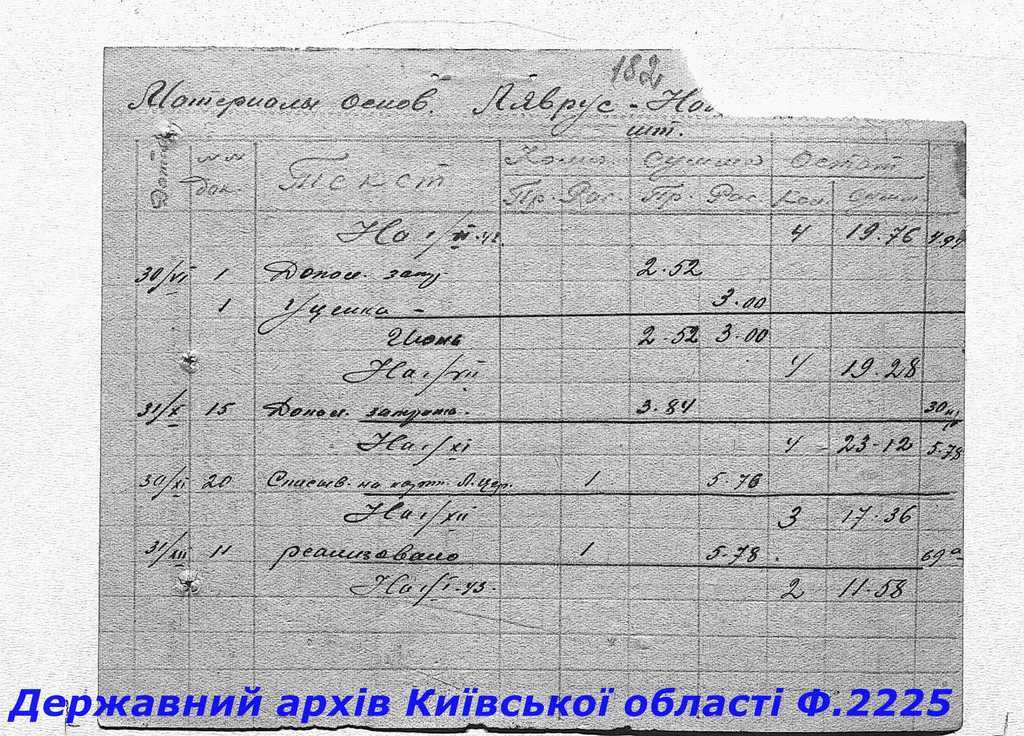 182
Материалы основ. Ляврус - На
шт.
Дата №№ док. Текст Колич. Сумма Остат
Пр. Рас. Пр. Рас. Кол. Сумм.
На 1/VI-42. 4 19.76 4.94
30/VI 1 Допол. затр. 2.52
1 Уценка - 3.00
Июнь 2.52 3.00
На 1/VII 4 19.28
31/X 15 Допол. затрат. 3.84
На 1/XI 4 23-12 5-78
30/XI 20 на 1 5.76
На 1/XII 3 17.36
31/XII 11 реализовано 1 5.78.
На 1/I-43. 2 11-58
Державний архів Київської області Ф.2225